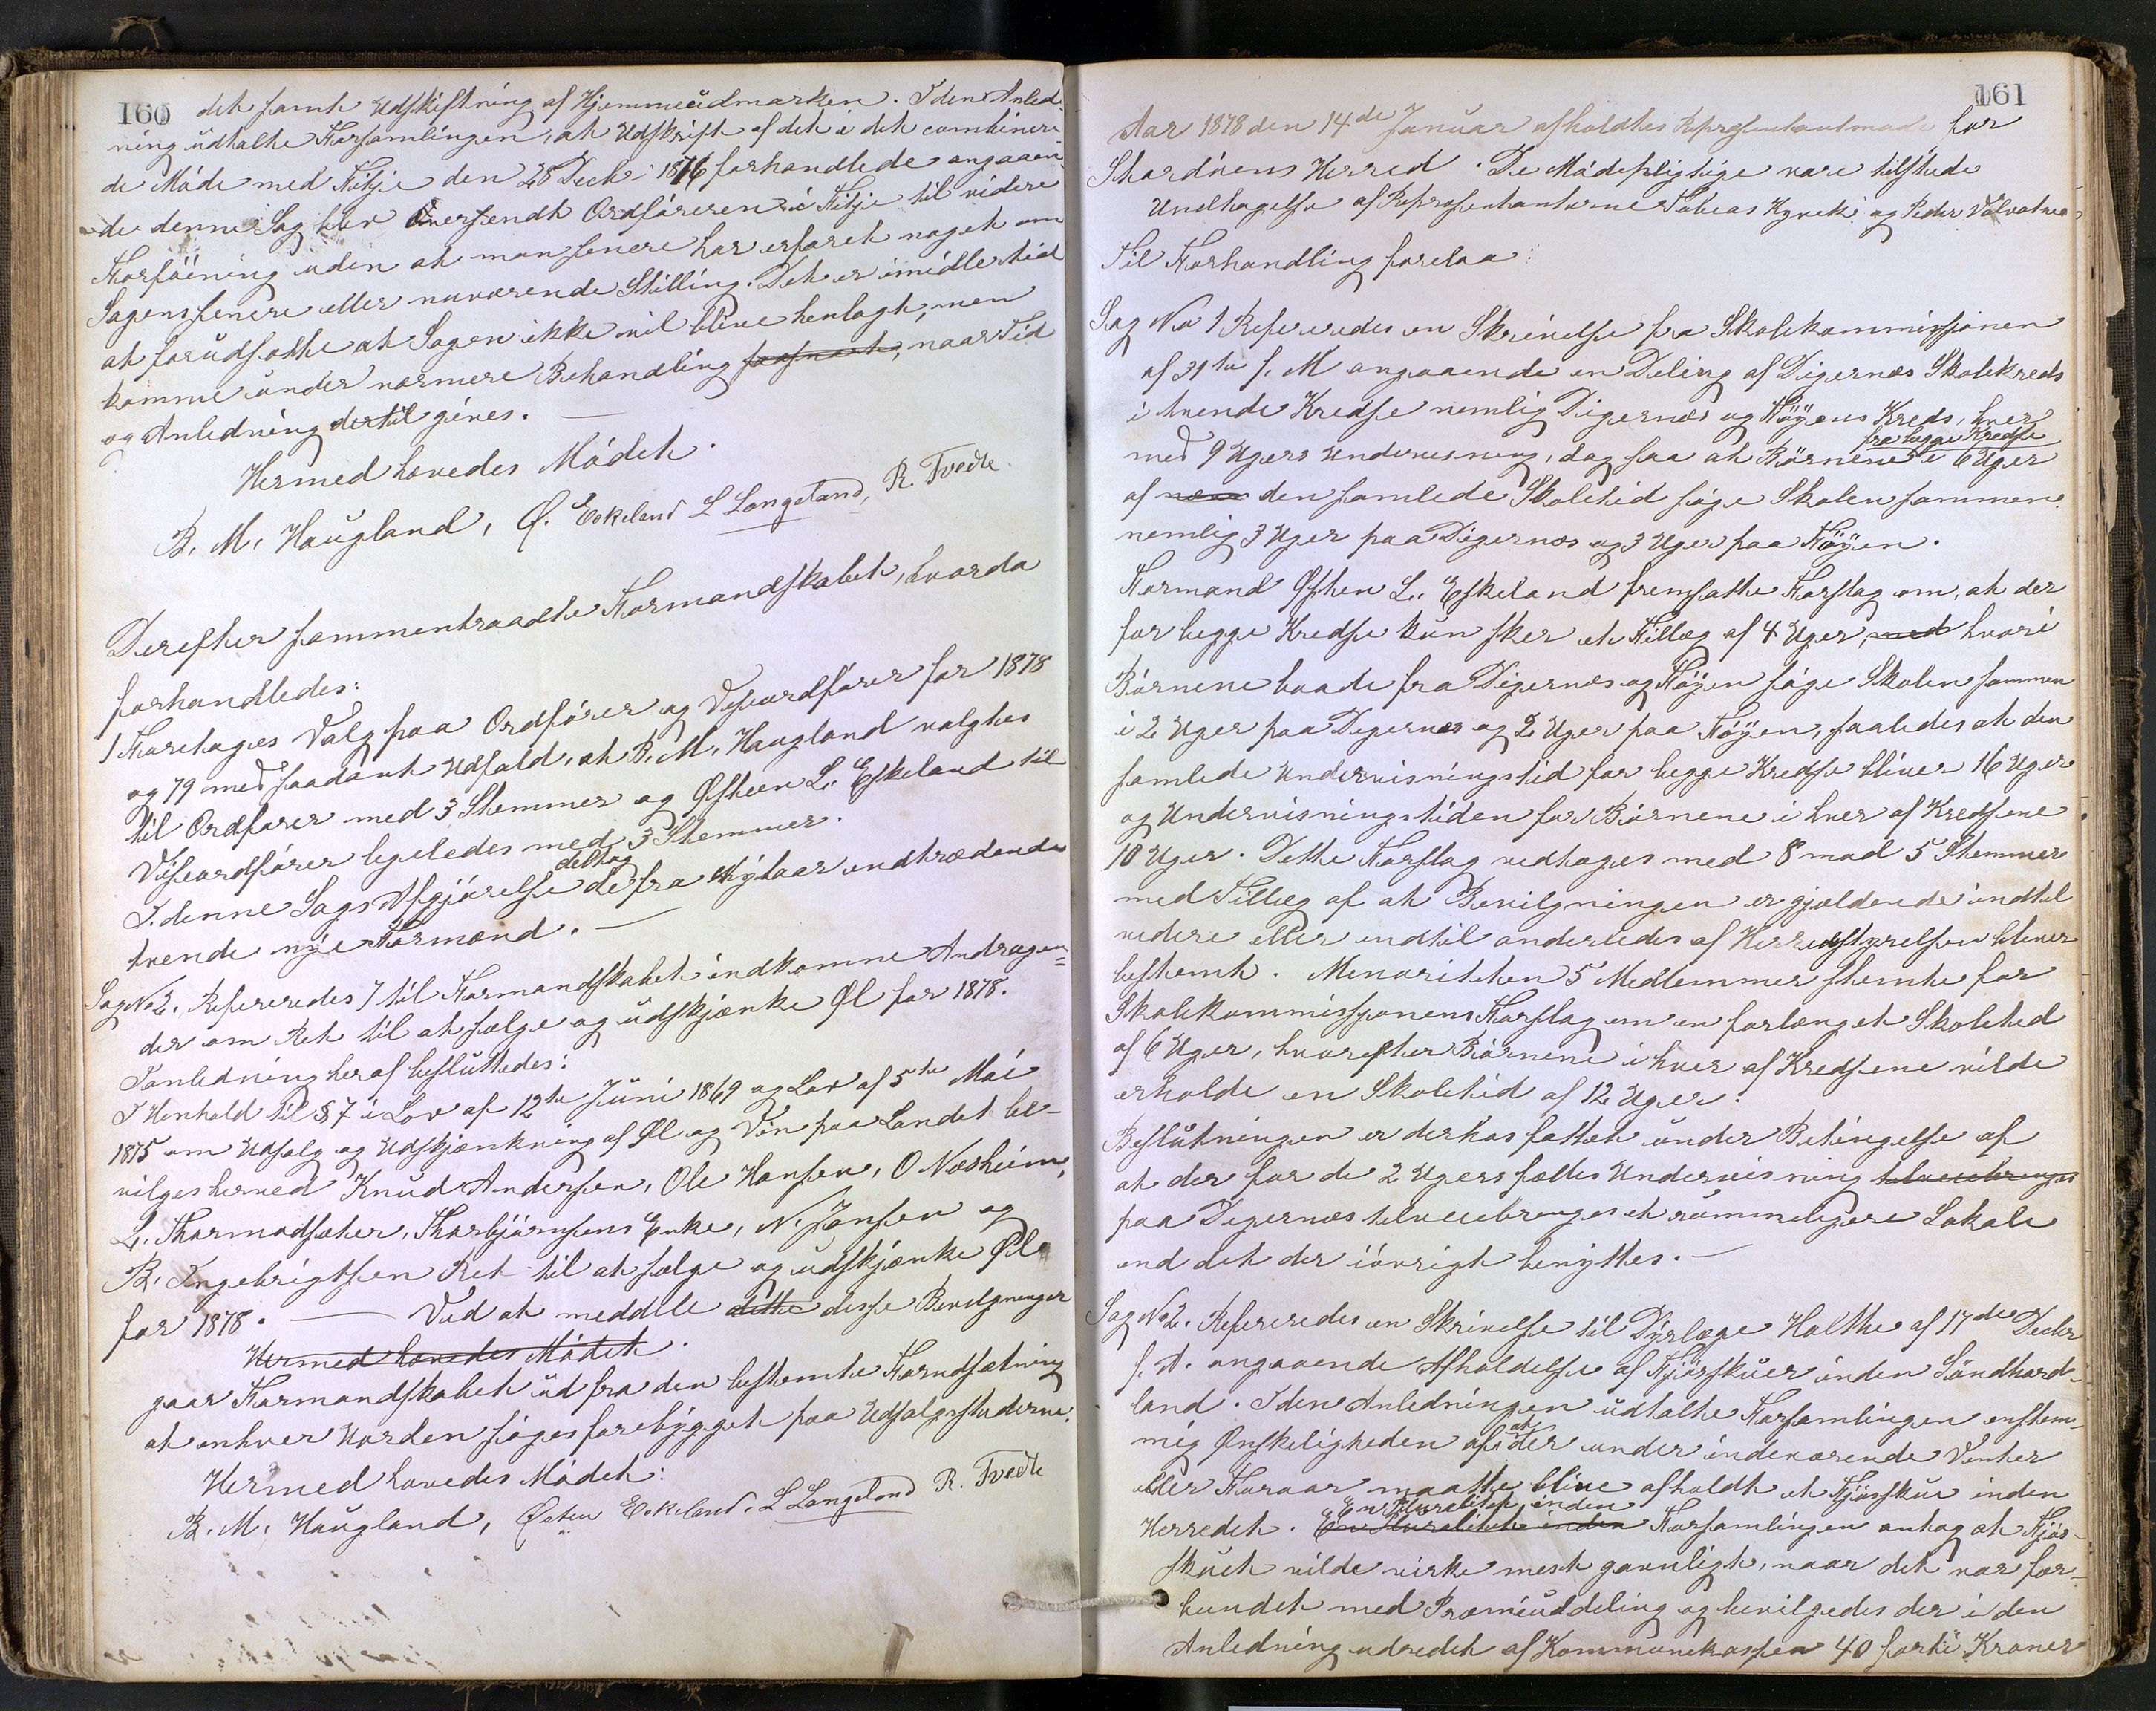 160
det samt Udskiftning af Hjemmeudmarken. I den Anled-
ning udtalte Forsamlingen, at Udskrift af det i det combinere-
de Møde med Fitje den 28 Decbr 1876 forhandlede angaaen-
de denne Sag blev Oversendt Ordføreren i Fitje til videre
Forføining uden at man senere har erfaret noget om
Sagens senere eller nuværende Stilling. Det er imidlertid
at forudsætte at Sagen ikke vil blive henlagt, men
komme under nærmere Behandling saasnart, naar Tid
og Anledning dertil gives. —
Hermed hævedes Mødet.
B. M. Haugland, Ø. Eskeland L Langeland, R. Tvedte
Derefter sammentraadte Formandskabet, hvorda
forhandledes:
1 Foretoges Valg paa Ordfører og Viseordfører for 1878
og 79 med saadant Udfald, at B. M. Haugland valgtes
til Ordfører med 3 Stemmer og Østen L. Eskeland til
Viseordfører ligeledes med 3 Stemmer.
I denne Sags Afgjørelse deltog de fra Nytaar indtrædende
tvende nye Formænd. —
Sag No 2. Refereredes 7 til Formandskabet indkomne Andragen=
der om Ret til at sælge og udskjænke Øl for 1878.
I anledning heraf besluttedes:
I Henhold til § 7 i Lov af 12te Juni 1869 og Lov af 5te Mai
1875 om Udsalg og Udskjænkning af Øl og Vin paa Landet be-
vilges herved Knud Andersen, Ole Hansen, O Næsheim,
L. Thormodsæter, Thorbjørnsens Enke, N. Jansen og
B. Ingebrigtsen Ret til at sælge og udskjænke Øl
for 1878. — Ved at meddele dette disse Bevilgninger
Hermed hævedes Mødet.
gaar Formandskabet ud fra den bestemte Forudsætning
at enhver Uorden søges forebygget paa Udsalgsstederne.
Hermed hævedes Mødet:
B. M. Haugland, Østen Eskeland. L Langeland R. Tvedte
161
Aar 1878 den 14de Januar afholdtes Repræsentantmøde for
Stordøens Herred. De Mødepligtige vare tilstede
Undtagelse af Repræsentanterne Tobias Hyvek og Peder Valvatne
Til Forhandling forelaa:
Sag No 1 Refereredes en Skrivelse fra Skolekommissionen
af 31te f. M angaaende en Deling af Digernæs Skolekreds
i tvende Kredse nemlig Digernæs og Føyens Kreds, hver
med 9 Ugers Undervisning, dog saa at Børnene fra begge Kredse i 6 Uger
af den samlede Skoletid søge Skolen sammen
nemlig 3 Uger paa Digernæs og 3 Uger paa Føyen.
Formand Østen L. Eskeland fremsatte Forslag om, at der
for begge Kredse kun sker et Tillæg af 4 Uger, med hvori
Børnene baade fra Digernæs og Føyen søge Skolen sammen
i 2 Uger paa Digernæs og 2 Uger paa Føyen, saaledes at den
samlede Undervisningstid for begge Kredse bliver 16 Uger
og Undervisningstiden for Børnene i hver af Kredsene
10 Uger. Dette Forslag vedtoges med 8 mod 5 Stemmer
med Tillæg af at Bevilgningen er gjældende indtil
videre eller indtil anderledes af Herredsstyrelsen bliver
bestemt. Minoriteten 5 Medlemmer stemte for
Skolekommissjonens Forslag om en forlænget Skoletid
af 6 Uger, hvorefter Børnene i hver af Kredsene vilde
erholde en Skoletid af 12 Uger.
Beslutningen er derhos fattet under Betingelse af
at der for de 2 Ugers fælles Undervisning tilveiebringes
paa Digernæs tilveiebringes et rummeligere Lokale
end det der iøvrigt benyttes. —
Sag No 2. Refereredes en Skrivelse til Dyrlæge Holthe af 17de Decbr
f. A. angaaende Afholdelse af Fjøsskuer inden Søndhord-
land. I den Anledningen udtalte Forsamlingen enstem-
mig Ønskeligheden af at der under indeværende Vinter
eller Foraar maatte blive afholdt et Fjøsskue inden
Herredet. En Pluralitet inden En Pluralitet inden Forsamlingen antog at Fjøs-
skuet vilde virke mest gavnligt, naar det var for-
bundet med Præmieuddeling og bevilgedes der i den
Anledning udredet af Kommunekassen 40 förti Kroner